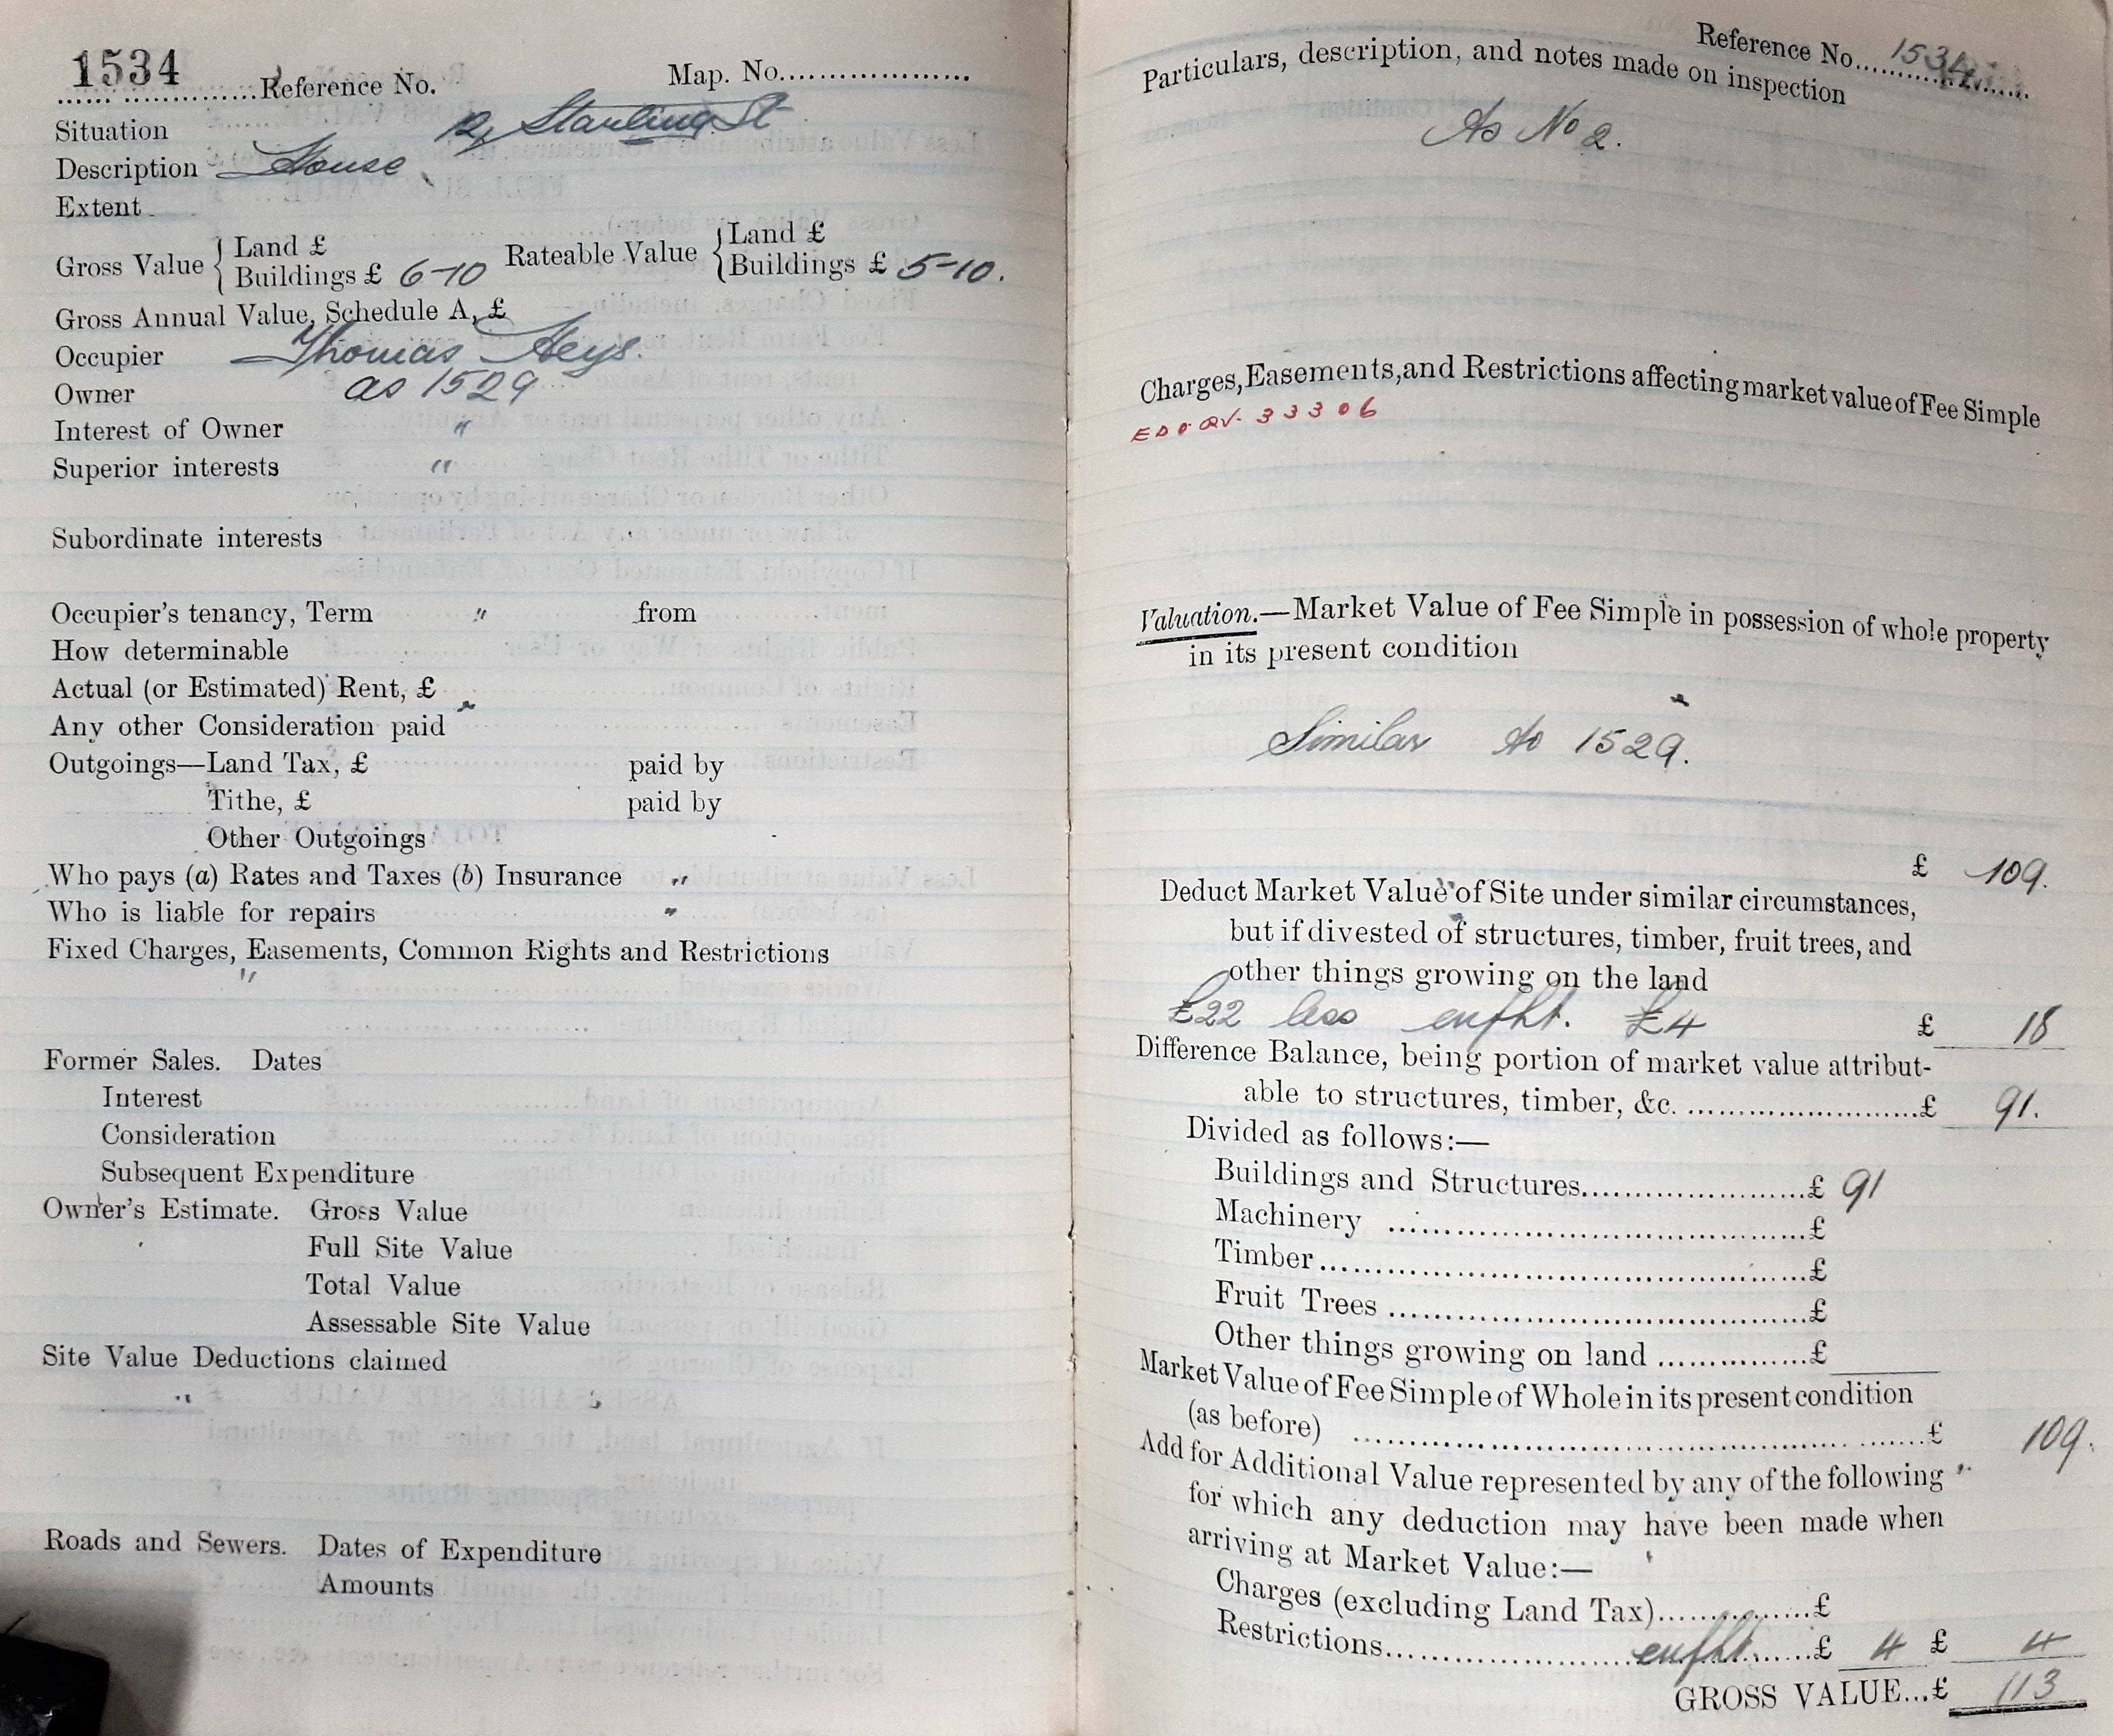 1534 Reference No. Map. No.
Situation 12, Starling St
Description House
Extent
Gross Value { Land £ Rateable Value { Land £
Buildings £ 6-10 Buildings £ 5-10.
Gross Annual Value, Schedule A, £
Occupier Thomas Heys.
Owner as 1529
Interest of Owner "
Superior interests "
Subordinate interests
Occupier's tenancy, Term " from
How determinable
Actual (or Estimated) Rent, £
Any other Consideration paid "
Outgoings—Land Tax, £ paid by
Tithe, £ paid by
Other Outgoings
Who pays (a) Rates and Taxes (b) Insurance "
Who is liable for repairs "
Fixed Charges, Easements, Common Rights and Restrictions
"
Former Sales. Dates
Interest
Consideration
Subsequent Expenditure
Owner's Estimate. Gross Value
Full Site Value
Total Value
Assessable Site Value
Site Value Deductions claimed
"
Roads and Sewers. Dates of Expenditure
Amounts
Reference No. 1534
Particulars, description, and notes made on inspection
As No 2.
Charges, Easements, and Restrictions affecting market value of Fee Simple
33306
Valuation.—Market Value of Fee Simple in possession of whole property
in its present condition
Similar to 1529.
£ 109.
Deduct Market Value of Site under similar circumstances,
but if divested of structures, timber, fruit trees, and
other things growing on the land
£22 less enfht. £4 £ 18
Difference Balance, being portion of market value attribut-
able to structures, timber, &c. £ 91.
Divided as follows:—
Buildings and Structures £ 91
Machinery £
Timber £
Fruit Trees £
Other things growing on land £
Market Value of Fee Simple of Whole in its present condition
(as before) £ 109.
Add for Additional Value represented by any of the following
for which any deduction may have been made when
arriving at Market Value:—
Charges (excluding Land Tax) £
Restrictions enfht. £ 4 £ 4
GROSS VALUE...£ 113